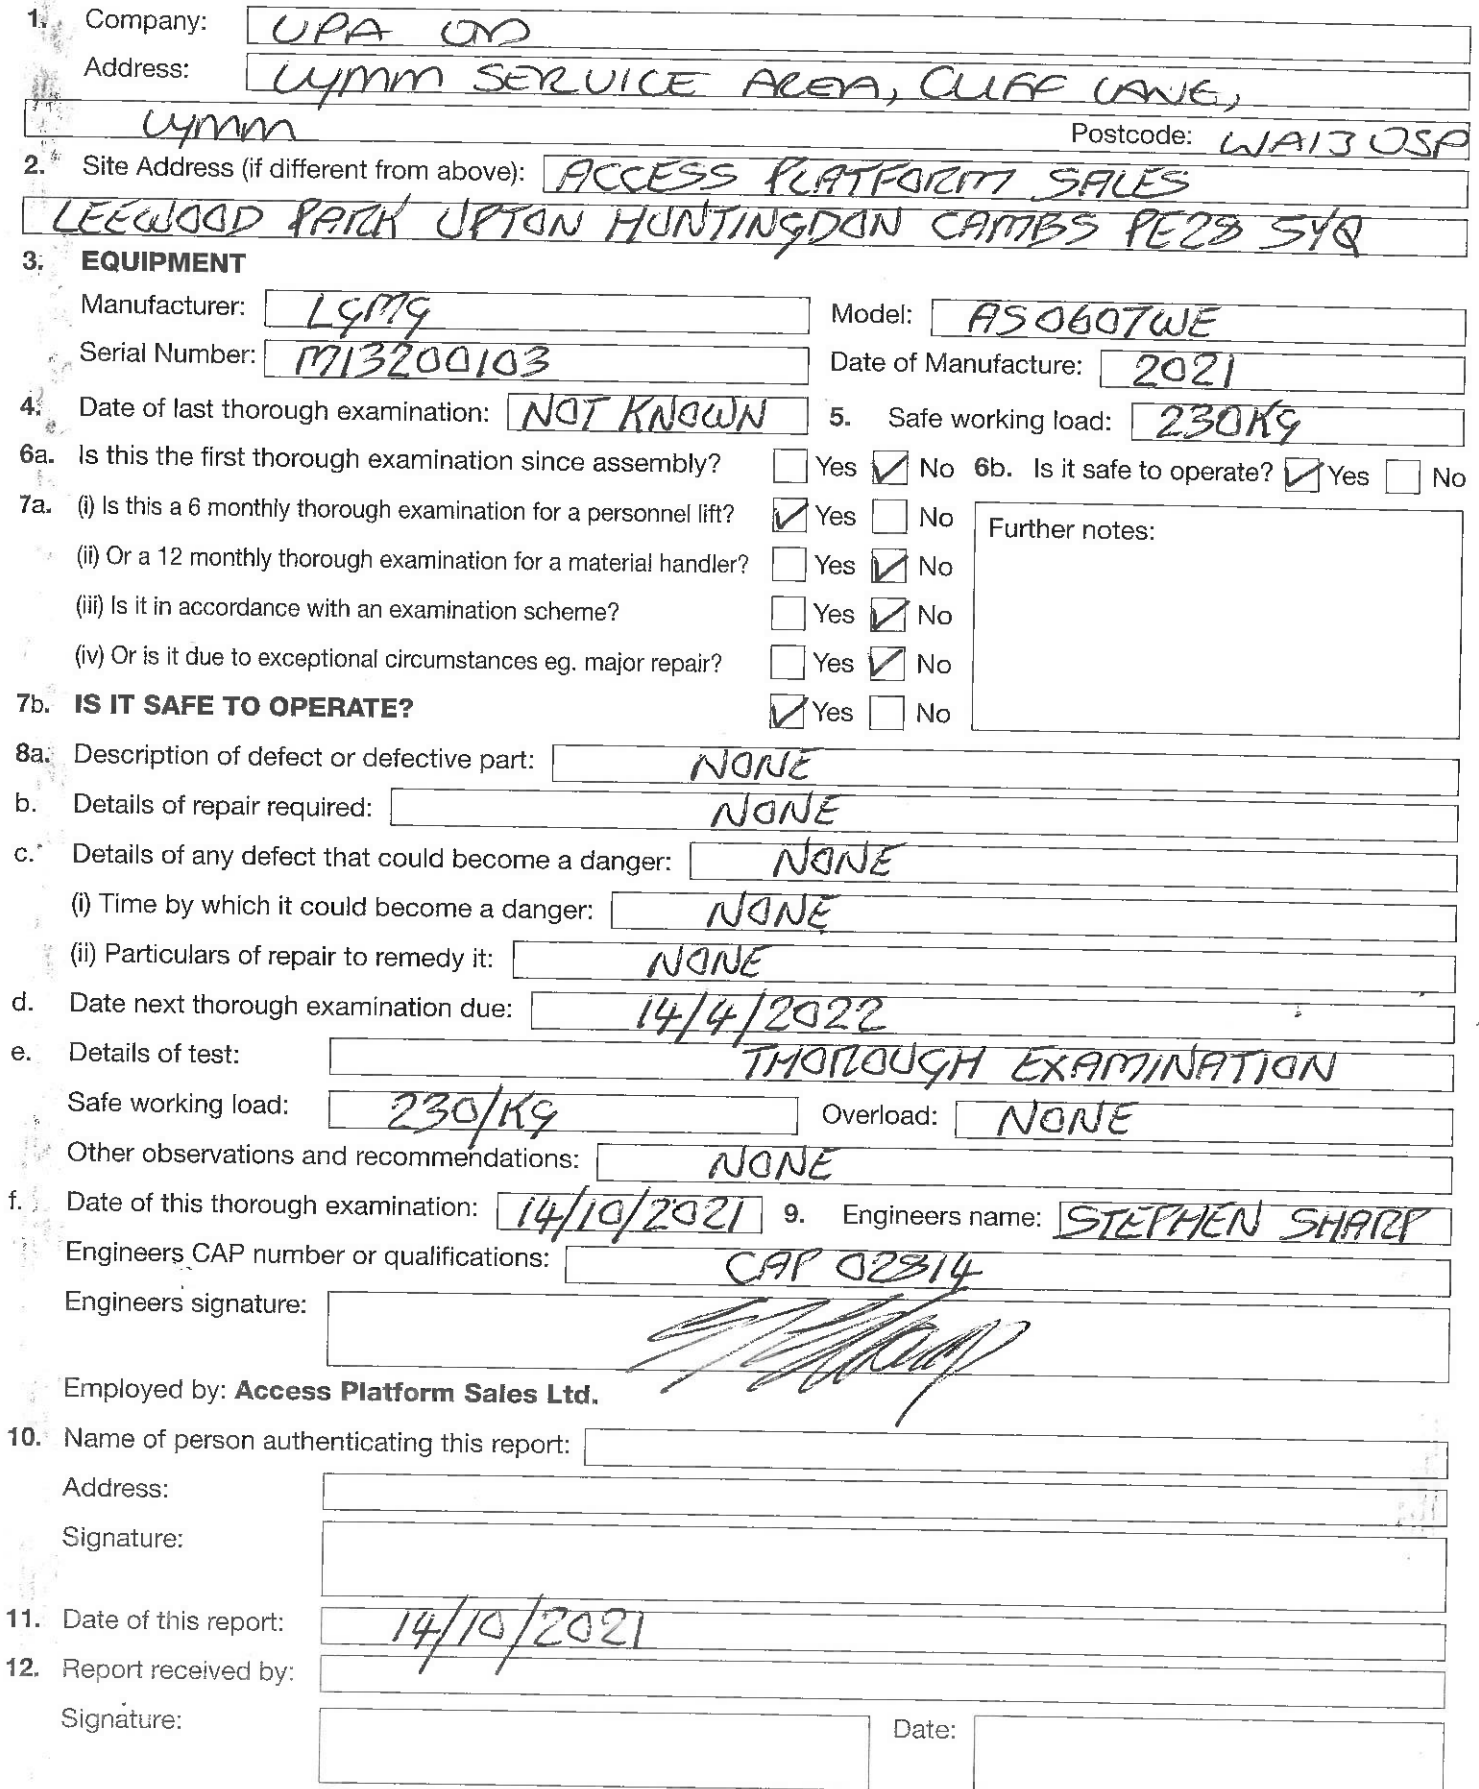 1. Company: UPA LTD
Address: LYMM SERVICE AREA, CLIFF LANE,
LYMM Postcode: WA13 0SP
2. Site Address (if different from above): ACCESS PLATFORM SALES
LEEWOOD PARK UPTON HUNTINGDON CAMBS PE28 5YQ
3. EQUIPMENT
Manufacturer: LGMG Model: AS0607WE
Serial Number: M13200103 Date of Manufacture: 2021
4. Date of last thorough examination: NOT KNOWN 5. Safe working load: 230KG
6a. Is this the first thorough examination since assembly? Yes ✓ No 6b. Is it safe to operate? ✓ Yes No
7a. (i) Is this a 6 monthly thorough examination for a personnel lift? ✓ Yes No Further notes:
(ii) Or a 12 monthly thorough examination for a material handler? Yes ✓ No
(iii) Is it in accordance with an examination scheme? Yes ✓ No
(iv) Or is it due to exceptional circumstances eg. major repair? Yes ✓ No
7b. IS IT SAFE TO OPERATE? ✓ Yes No
8a. Description of defect or defective part: NONE
b. Details of repair required: NONE
c. Details of any defect that could become a danger: NONE
(i) Time by which it could become a danger: NONE
(ii) Particulars of repair to remedy it: NONE
d. Date next thorough examination due: 14/4/2022
e. Details of test: THOROUGH EXAMINATION
Safe working load: 230/KG Overload: NONE
Other observations and recommendations: NONE
f. Date of this thorough examination: 14/10/2021 9. Engineers name: STEPHEN SHARP
Engineers CAP number or qualifications: CAP 02814
Engineers signature:
Employed by: Access Platform Sales Ltd.
10. Name of person authenticating this report:
Address:
Signature:
11. Date of this report: 14/10/2021
12. Report received by:
Signature: Date: